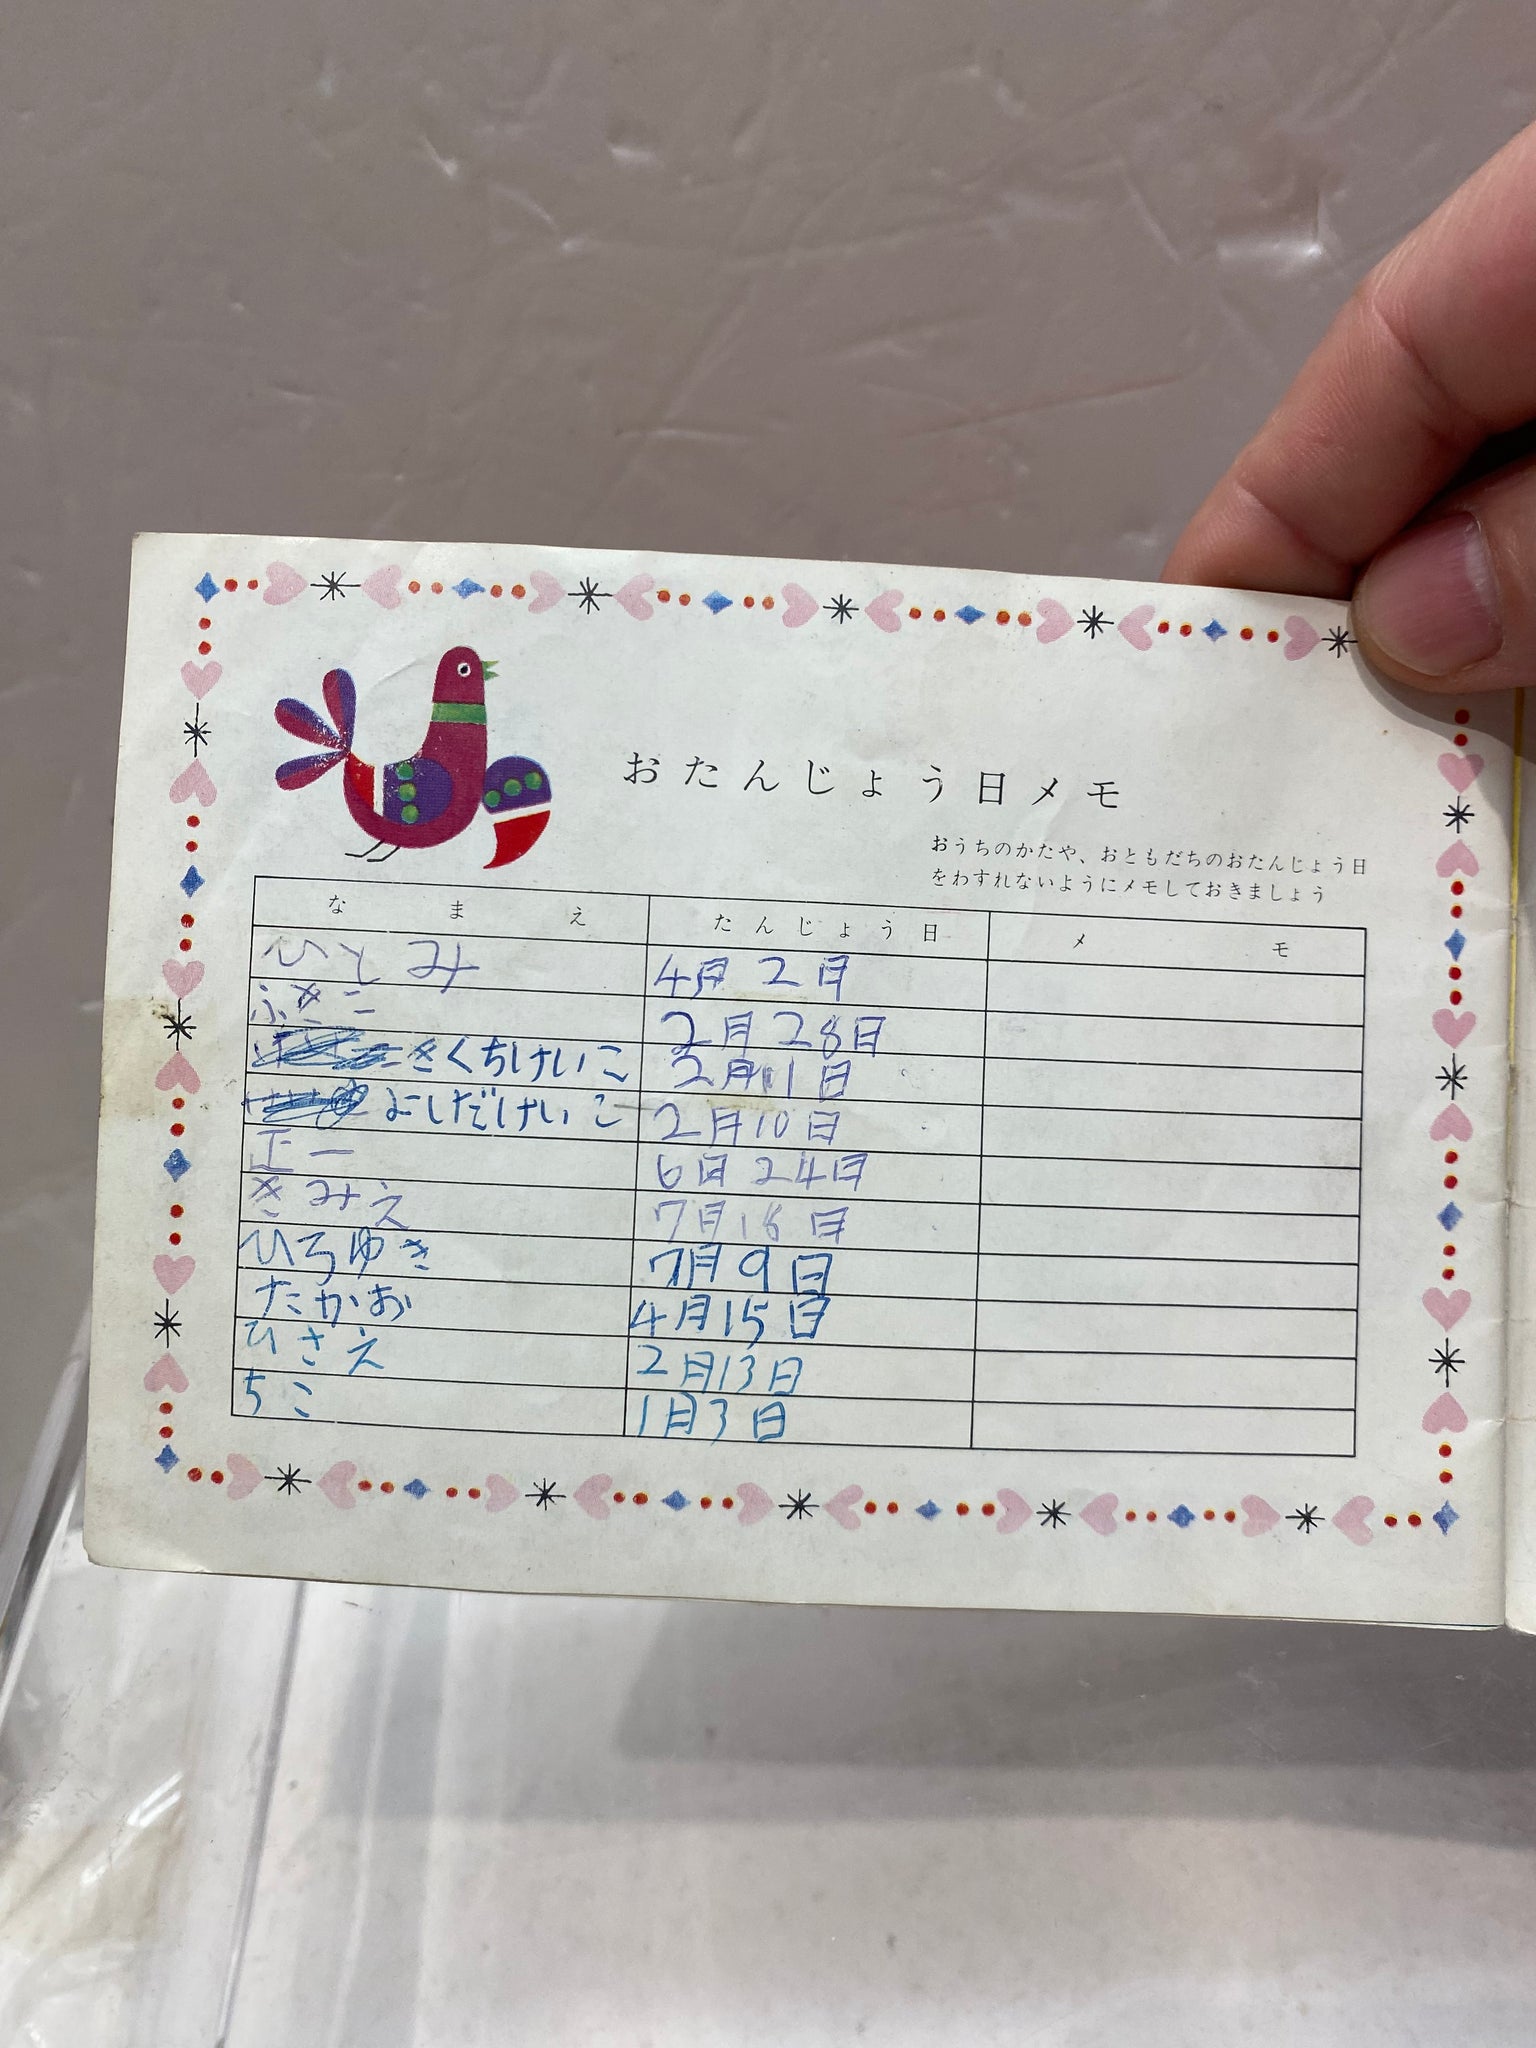 おたんじょう日メモ
おうちのかたや、おともだちのおたんじょう日
をわすれないようにメモしておきましょう
なまえ たんじょう日 メモ
ひとみ 4月2日
ふきこ 2月28日
きくちけいこ 2月11日
よしだけいこ 2月10日
正一 6日24日
きみえ 7月18日
ひろゆき 7月9日
たかお 4月15日
ひさえ 2月13日
ちこ 1月3日